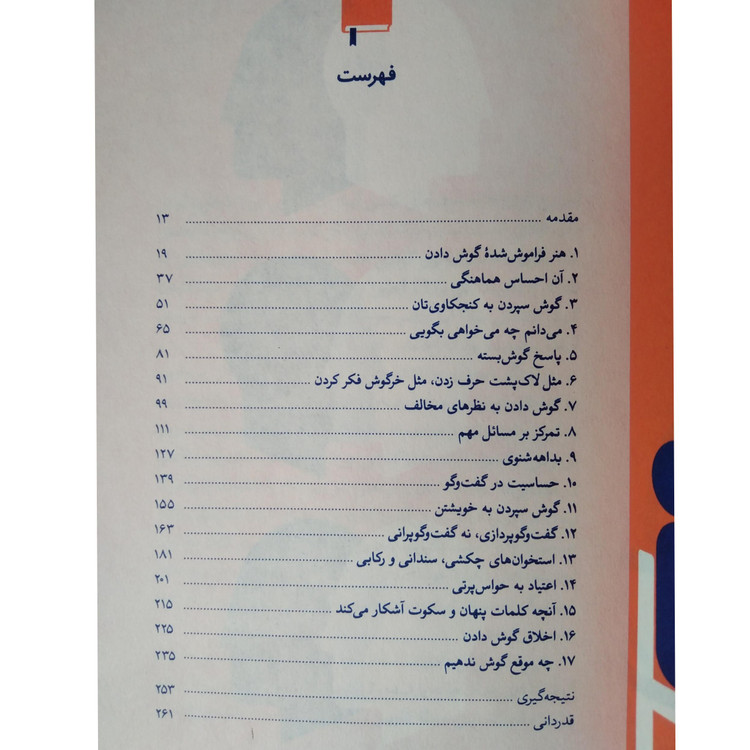 فهرست
مقدمه ........ ۱۳
۱. هنر فراموش‌شدهٔ گوش دادن ........ ۱۹
۲. آن احساس هماهنگی ........ ۳۷
۳. گوش سپردن به کنجکاوی‌تان ........ ۵۱
۴. می‌دانم چه می‌خواهی بگویی ........ ۶۵
۵. پاسخ گوش‌بسته ........ ۸۱
۶. مثل لاک‌پشت حرف زدن، مثل خرگوش فکر کردن ........ ۹۱
۷. گوش دادن به نظرهای مخالف ........ ۹۹
۸. تمرکز بر مسائل مهم ........ ۱۱۱
۹. بداهه‌شنوی ........ ۱۲۷
۱۰. حساسیت در گفت‌وگو ........ ۱۳۹
۱۱. گوش سپردن به خویشتن ........ ۱۵۵
۱۲. گفت‌وگوپردازی، نه گفت‌وگوپرانی ........ ۱۶۳
۱۳. استخوان‌های چکشی، سندانی و رکابی ........ ۱۸۱
۱۴. اعتیاد به حواس‌پرتی ........ ۲۰۱
۱۵. آنچه کلمات پنهان و سکوت آشکار می‌کند ........ ۲۱۵
۱۶. اخلاق گوش دادن ........ ۲۲۵
۱۷. چه موقع گوش ندهیم ........ ۲۳۵
نتیجه‌گیری ........ ۲۵۳
قدردانی ........ ۲۶۱